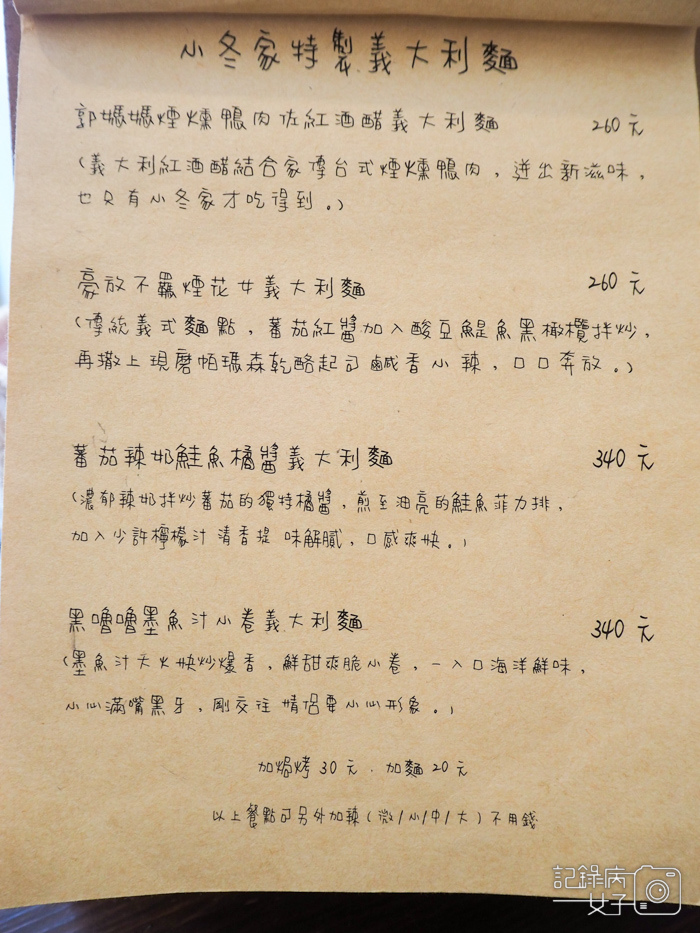 小冬家特製義大利麵
郭媽媽煙燻鴨肉佐紅酒醋義大利麵 260元
(義大利紅酒醋結合家傳台式煙燻鴨肉，迸出新滋味，
也只有小冬家才吃得到。)
豪放不羈煙花女義大利麵 260元
(傳統義式麵點，蕃茄紅醬加入酸豆鯷魚黑橄欖拌炒，
再撒上現磨帕瑪森乾酪起司鹹香小辣，口口奔放。)
蕃茄辣奶鮭魚橘醬義大利麵 340元
(濃郁辣奶拌炒蕃茄的獨特橘醬，煎至油亮的鮭魚菲力排，
加入少許檸檬汁清香提味解膩，口感爽快。)
黑嚕嚕墨魚汁小卷義大利麵 340元
(墨魚汁大火快炒爆香，鮮甜爽脆小卷，一入口海洋鮮味，
小心滿嘴黑牙，剛交往情侶要小心形象。)
加焗烤30元．加麵20元
以上餐點可另外加辣(微/小/中/大)不用錢
記錄病
女子